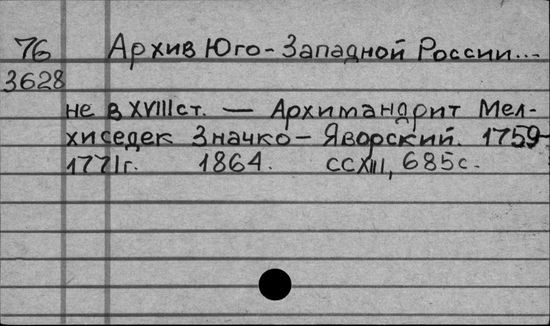 76 Архив Юго-Западной России...
3628
не в XVIII ст. — Архимандрит Мел-
хиседек Значко-Яворский. 1759-
1771г. 1864. CCXIII, 685с.